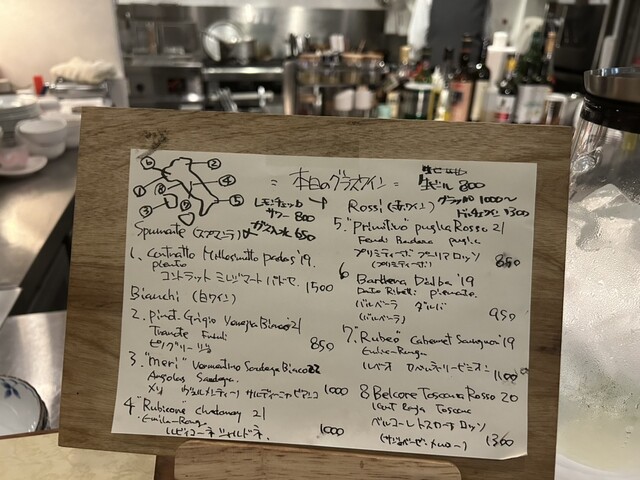 = 本日のグラスワイン =
生ビール 800
レモンチェッロ
サワー 800
ガス入水 650
グラッパ 1000~
Spumate (スプマンテ)
1. Contratto Millesimato Padas '19
コントラット ミレジマート パドセ 1500
Bianchi (白ワイン)
2. pinot Grigio Venezia Bianco '21
ピノ グリージョ 850
3. "Meri" Vermentino Sardegna Bianco 22
Angolas Sardegna
メリ ヴェルメンティーノ サルディーニャ ビアンコ 1000
4 "Rubicone" chardonnay 21
Emilia-Romag
ルビコーネ シャルドネ 1000
Rossi (赤ワイン)
5. "Primitivo" puglia Rosso 21
puglia
プリミティーボ プーリア ロッソ
(プリミティーボ) 850
6 Barbera D'Alba '19
piemonte
バルベーラ ダルバ
(バルベーラ) 950
7. "Rubeo" Cabernet Sauvignon '19
Emilia-Romag
1100
8 Belcore Toscana Rosso 20
Toscana
ベルコーレ トスカーナ ロッソ
(サンジョベーゼ・メルロー) 1300